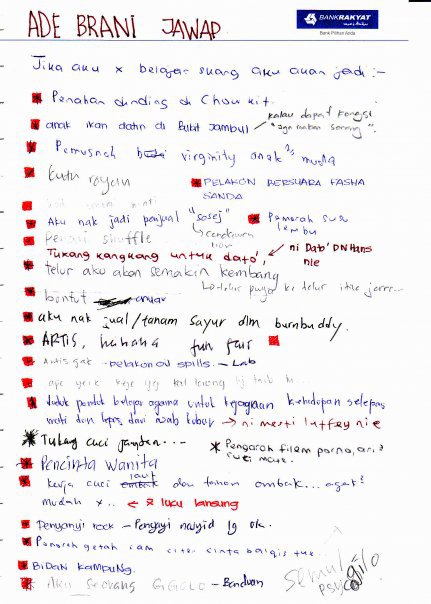 ADE BRANI JAWAP
BANKRAKYAT
Bank Pilihan Anda
Jika aku x belajar suang aku akan jadi :-
Penahan dinding di Chow kit.
anak ikan datin di Bukit Jambul
kalau dapat kongsi
"jgn makan sorang"
Pemusnah virginity anak" muda
kutu rayau
PELAKON BERSUARA FASHA
SANDA
Aku nak jadi penjual "sosej"
Pemerah susu
lembu
cendawan
Penari shuffle
Tukang kangkang untuk dato',
ni Dato' DN Hans
nie
telur aku akan semakin kembang
bontot
aku nak jual/tanam sayur dlm burnbuddy.
ARTIS, hahaha fun fair
Artis gak - pelakon oil spills. - Lab
duduk pondok belajar agama untuk kehidupan selepas
mati dan lepas dari azab kubur → ni mesti luffey nie
Tukang cuci jamban...
Pengarah filem porno, ari2
Pencinta Wanita
kerja cuci laut dan tahan ombak... agak2
mudah x .. lucu lansung
Penyanyi rock - Penyayi nasyid lg ok.
Penoreh getah cam citer cinta balqis tue..
BIDAN KAMPUNG.
Aku seorang GIGOLO - Banduan
semula
psyco
gilo